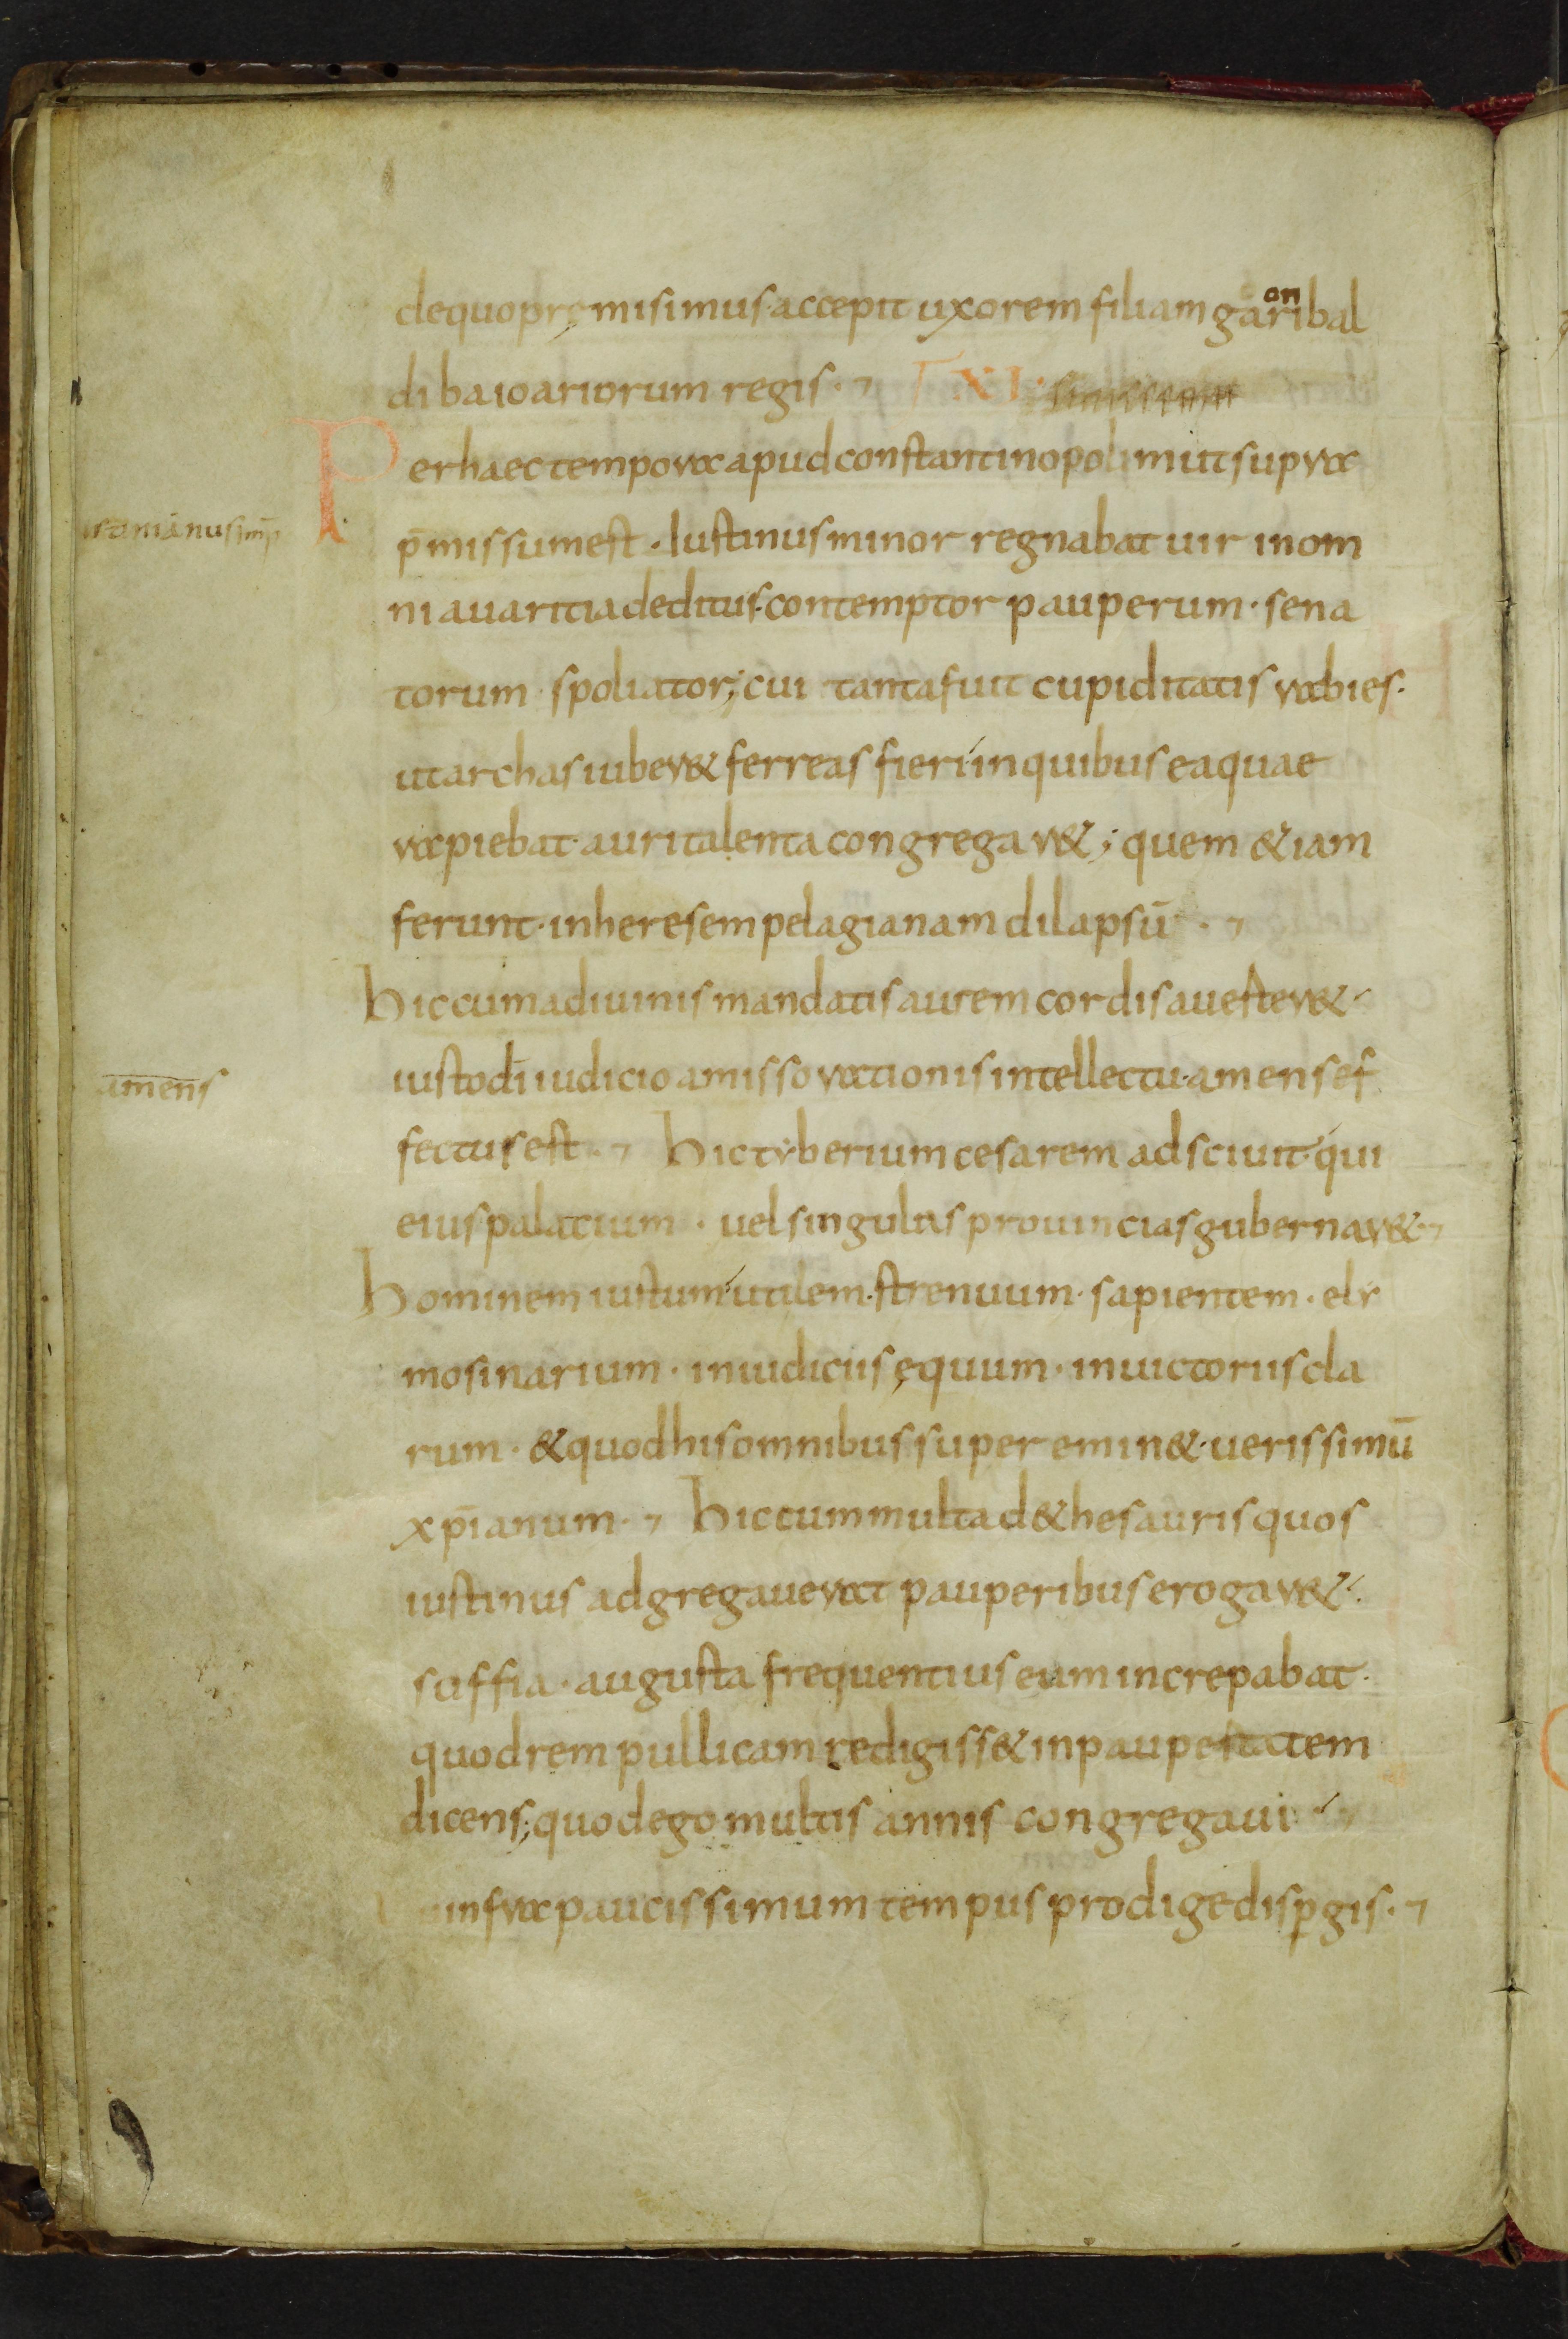 dequopręmisimus·accepit uxorem filiam garibal
on
di baioariorum regis·
XI·
Perhaec tempora apud constantinopolim ut supra
p̄missum est·Iustinus minor regnabat uir in om
ni auaritia deditus·contemptor pauperum·sena
torum spoliator; cui tanta fuit cupiditatis rabies·
ut archas iuber& ferreas fieri in quibus ea quae
rapiebat·auri talenta congregar&; quem &iam
ferunt·in heresem pelagianam dilapsū·
hic cum a diuinis mandatis aurem cordis auerter&
iusto dī iudicio amisso rationis intellectu·amens ef
fectus est· hic tyberium cesarem adsciuit·qui
eius palatium·uel singulas prouincias gubernar&·
hominem iustum utilem·strenuum·sapientem·ely
mosinarium·in iudiciis ęquum·in uictoriis cla
rum·& quod his omnibus superemin&·uerissimū
xp̄ianum· hic cum multa de thesauris quos
iustinus adgregauerat pauperibus erogar&
suffia·augusta frequentius eum increpabat·
quod rem pullicam redigiss& in paupertatem
dicens; quod ego multis annis congregaui
infra paucissimum tempus prodige disp̱gis·
amens